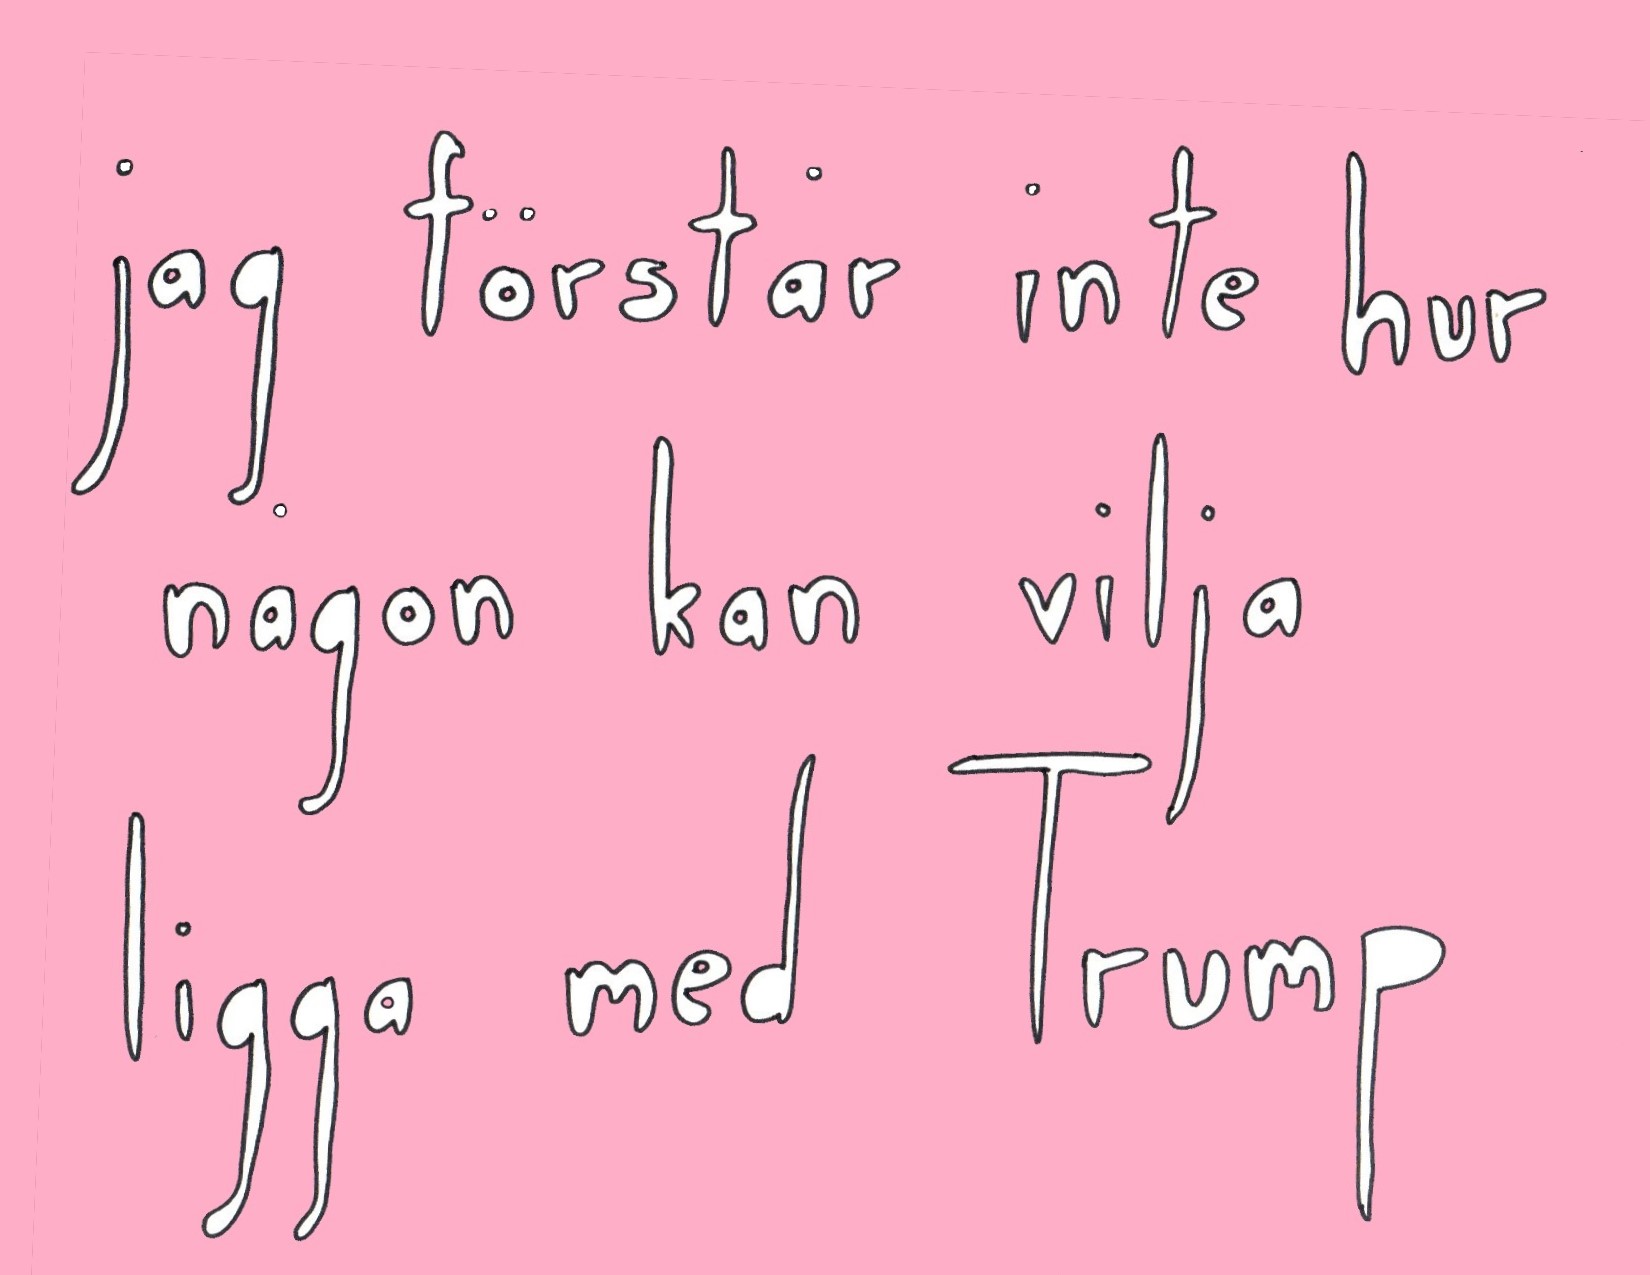 jag förstår inte hur
någon kan vilja
ligga med Trump